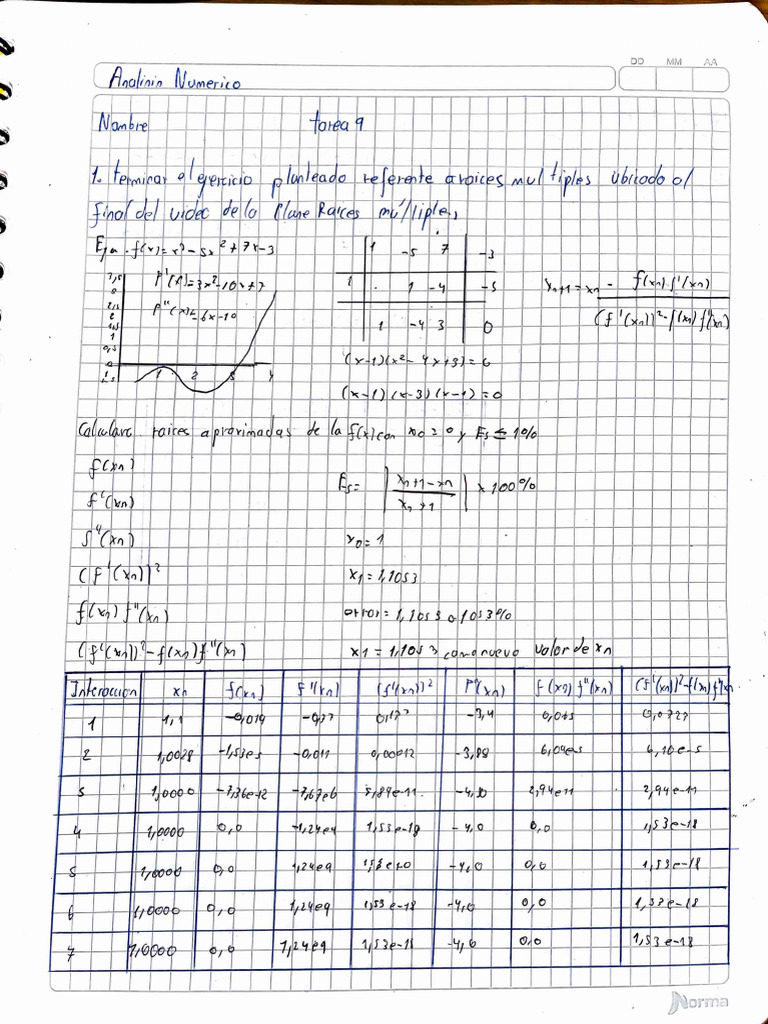 DD MM AA
Analisis Numerico
Nombre tarea 9
1. terminar el ejercicio planteado referente a raices multiples ubicado al
final del video de la Clase Raices múltiples
Ejm. f(x)=x³-5x²+7x-3
f'(x)=3x²-10x+7
f''(x)=6x-10
1 -5 7 -3
1 . 1 -4 -3
1 -4 3 0
xn+1 = xn - f(xn) f'(xn) / (f'(xn))²-f(xn) f''(xn)
1 2 3 4
(x-1)(x²-4x+3)=0
(x-1)(x-3)(x-1)=0
Calcular raices aproximadas de la f(x) con x0=0 y Es ≤ 1%
f(xn)
Es= | xn+1-xn / xn+1 | x 100%
f'(xn)
f''(xn) x0=1
(f'(xn))² x1=1,1053
f(xn) f''(xn) error=1,1053 o 1053%
(f'(xn))²-f(xn) f''(xn) x1=1,1053 como nuevo valor de xn
Interaccion xn f(xn) f'(xn) (f'(xn))² f''(xn) f(xn) f''(xn) (f'(xn))²-f(xn) f''xn
1 1,1 -0,019 -3,4
2 1,0028 -1,53e5 -0,011 0,00012 -3,98 6,04e5 6,10e-5
3 1,0000 -7,36e-12 -7,67e6 5,89e-11 2,94e11 2,94e-11
4 1,0000 0,0 1,53e-18 -4,0 0,0 1,53e-18
5 1,0000 0,0 1,24e9 -4,0 0,0 1,53e-18
6 1,0000 0,0 1,24e9 1,53e-18 -4,0 0,0 1,53e-18
7 1,0000 0,0 1,24e9 1,53e-18 -4,0 0,0 1,53e-18
Norma